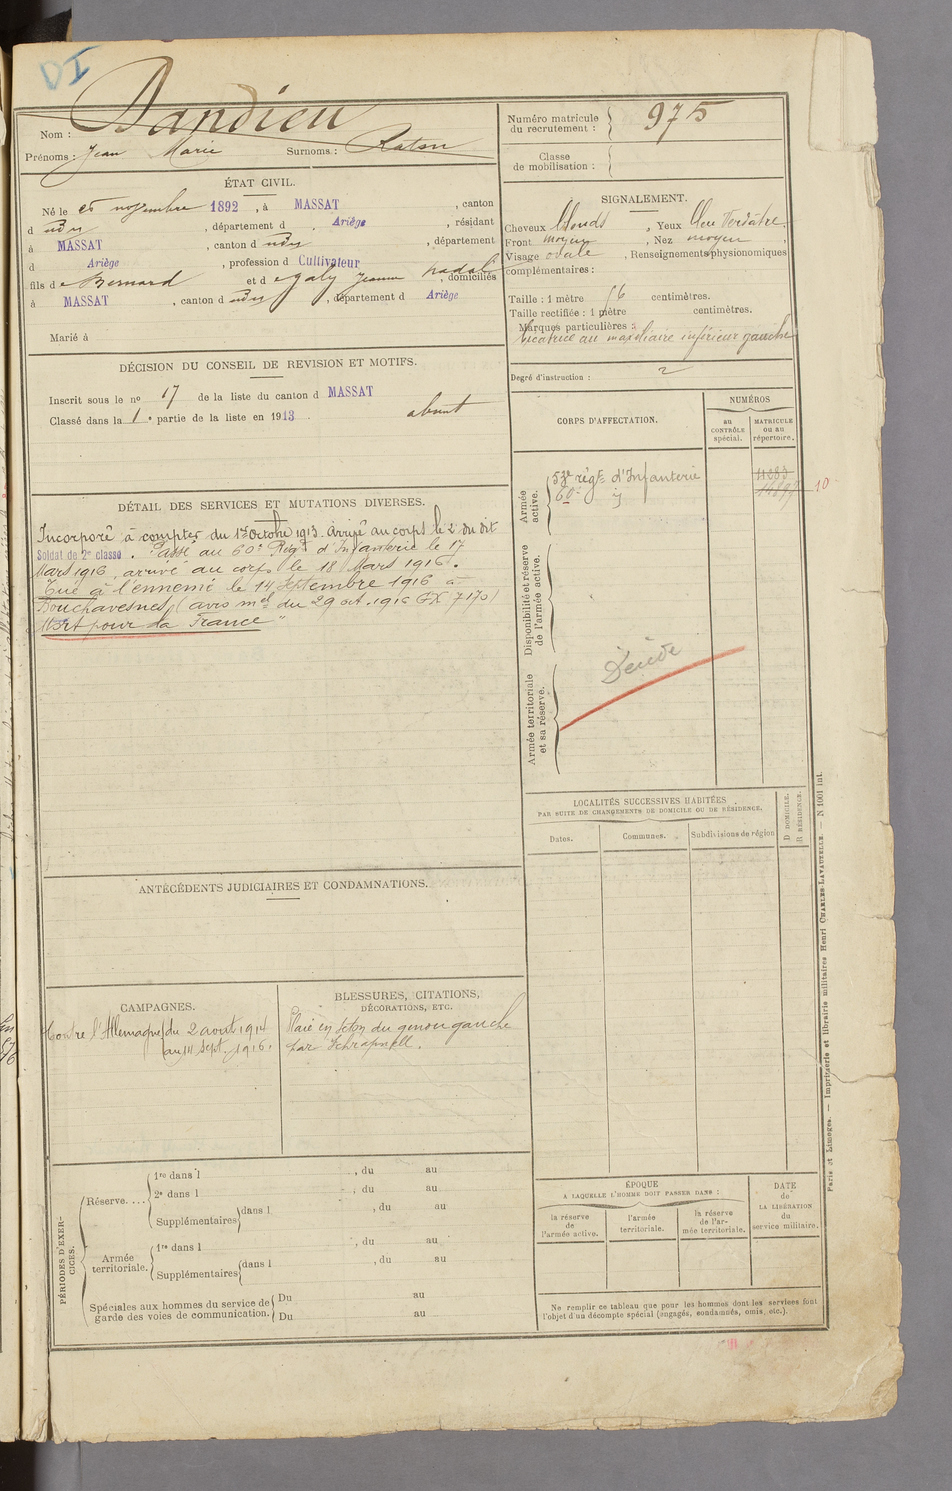 DI
Nom : Dandieu
Prénoms : Jean Marie Surnoms : Raton
ÉTAT CIVIL.
Né le 25 novembre 1892, à MASSAT, canton
d udu, département d Ariège, résidant
à MASSAT, canton d udu, département
d Ariège, profession d Cultivateur
fils de Bernard et de Galy Jeanne Nadal, domiciliés
à MASSAT, canton d udu, département d Ariège
Marié à
DÉCISION DU CONSEIL DE REVISION ET MOTIFS.
Inscrit sous le no 17 de la liste du canton d MASSAT
Classé dans la 1e partie de la liste en 1913 absent
DÉTAIL DES SERVICES ET MUTATIONS DIVERSES.
Incorporé à compter du 1er octobre 1913. Arrivé au corps le 2 du dit
Soldat de 2e classe. Passé au 60e Régt d'Infanterie le 17
Mars 1916, arrivé au corps le 18 Mars 1916.
Tué à l'ennemi le 14 Septembre 1916 à
Bouchavesnes (avis mel du 29 oct. 1916 GX 7170)
Mort pour la France"
ANTÉCÉDENTS JUDICIAIRES ET CONDAMNATIONS.
CAMPAGNES.
Contre l'Allemagne du 2 août 1914
au 14 Sept. 1916.
BLESSURES, CITATIONS,
DÉCORATIONS, ETC.
Plaie en séton du genou gauche
par Schrapnell.
PÉRIODES D'EXER-
CICES.
Réserve....
1re dans l , du au
2e dans l , du au
Supplémentaires dans l , du au
Armée
territoriale.
1re dans l , du au
Supplémentaires dans l , du au
Spéciales aux hommes du service de
garde des voies de communication.
Du au
Du au
Numéro matricule
du recrutement : 975
Classe
de mobilisation :
SIGNALEMENT.
Cheveux blonds, Yeux bleu verdâtre,
Front moyen, Nez moyen,
Visage ovale, Renseignements physionomiques
complémentaires :
Taille : 1 mètre 56 centimètres.
Taille rectifiée : 1 mètre centimètres.
Marques particulières :
Cicatrice au maxillaire inférieur gauche
Degré d'instruction : 2
CORPS D'AFFECTATION.
NUMÉROS
au
CONTRÔLE
spécial.
MATRICULE
ou au
répertoire.
Armée
active.
53e régt d'Infanterie 11283
60e 10
Disponibilité et réserve
de l'armée active.
Armée territoriale
et sa réserve.
Décédé
LOCALITÉS SUCCESSIVES HABITÉES
PAR SUITE DE CHANGEMENTS DE DOMICILE OU DE RÉSIDENCE.
Dates.
Communes.
Subdivisions de région
D DOMICILE.
R RÉSIDENCE.
ÉPOQUE
A LAQUELLE L'HOMME DOIT PASSER DANS :
la réserve
de
l'armée active.
l'armée
territoriale.
la réserve
de l'ar-
mée territoriale.
DATE
de
LA LIBÉRATION
du
service militaire.
Ne remplir ce tableau que pour les hommes dont les services font
l'objet d'un décompte spécial (engagés, condamnés, omis, etc.).
Paris et Limoges. — Imprimerie et librairie militaires Henri CHARLES-LAVAUZELLE. — N 1001 int.